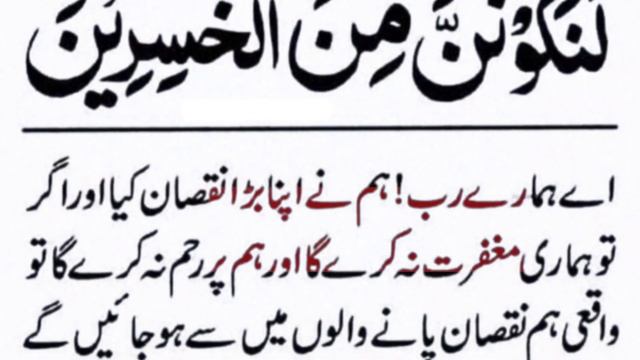 لَنَكُوْنَنَّ مِنَ الْخٰسِرِيْنَ
اے ہمارے رب! ہم نے اپنا بڑا نقصان کیا اور اگر
تو ہماری مغفرت نہ کرے گا اور ہم پر رحم نہ کرے گا تو
واقعی ہم نقصان پانے والوں میں سے ہو جائیں گے